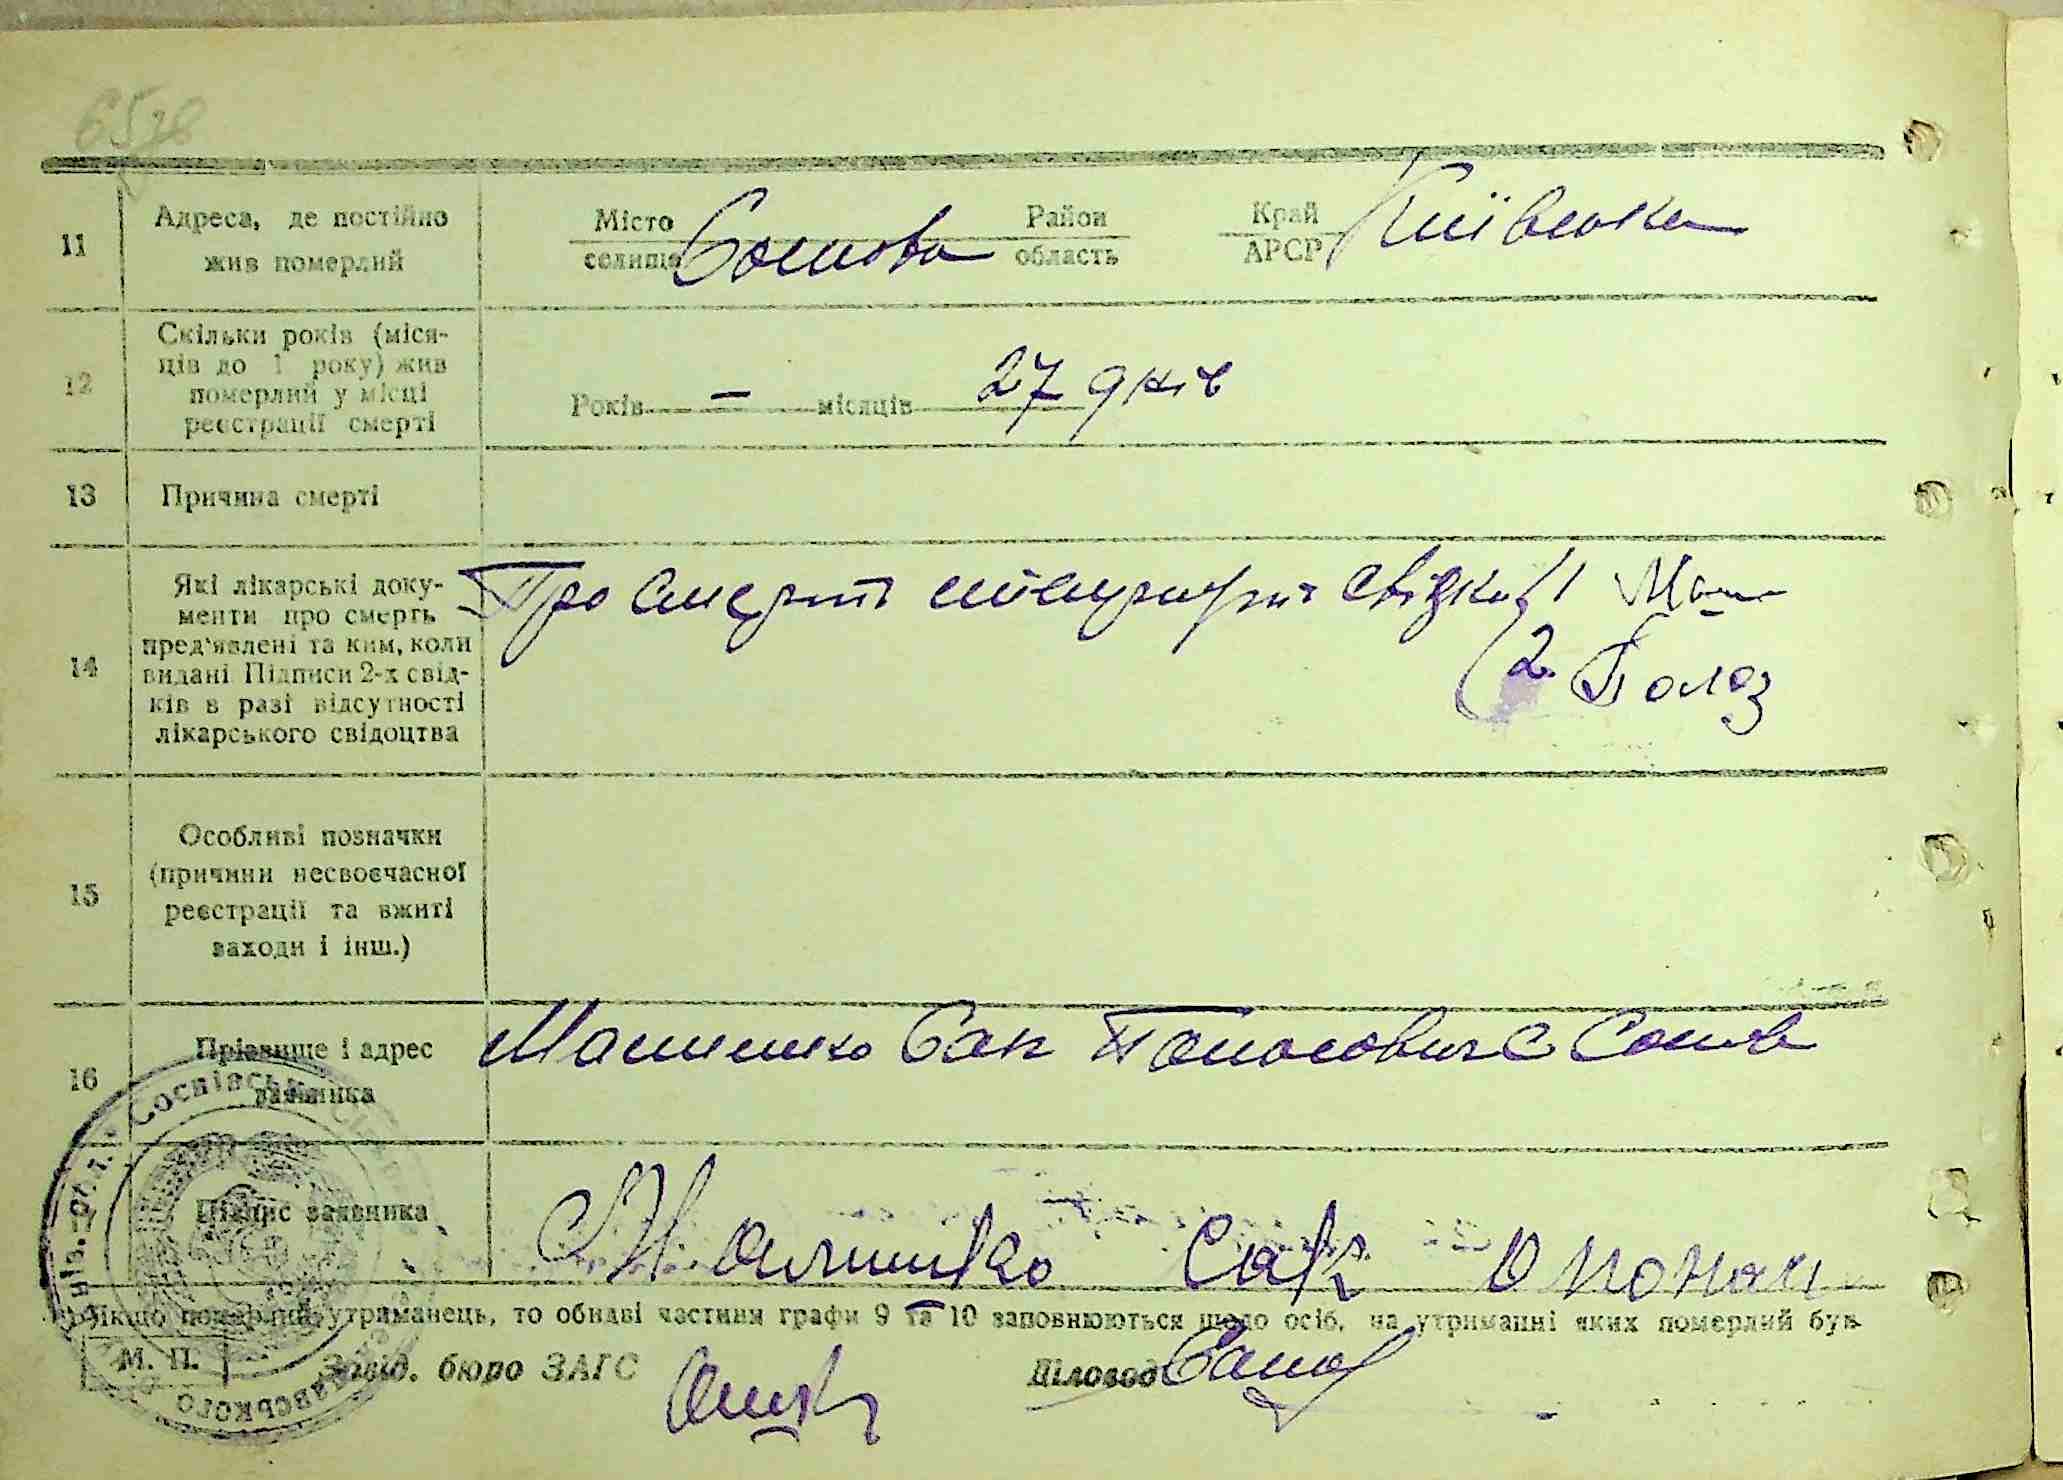 11
Адреса, де постійно
жив померлий
Місто Район Край Київська
селище Соснова область АРСР
12
Скільки років (міся-
ців до 1 року) жив
померлий у місці
реєстрації смерті
Років — місяців 27 днів
13
Причина смерті
14
Які лікарські доку-
менти про смерть
пред'явлені та ким, коли
видані Підписи 2-х свід-
ків в разі відсутності
лікарського свідоцтва
Про смерть свідки 1
2
15
Особливі позначки
(причини несвоєчасної
реєстрації та вжиті
заходи і інш.)
16
Прізвище і адрес
заявника
Сак Панасович с
Підпис заявника
Сак
*) Якщо померлий утриманець, то обидві частини графи 9 та 10 заповнюються щодо осіб, на утриманні яких померлий був
М. П.
Завід. бюро ЗАГС
Діловод